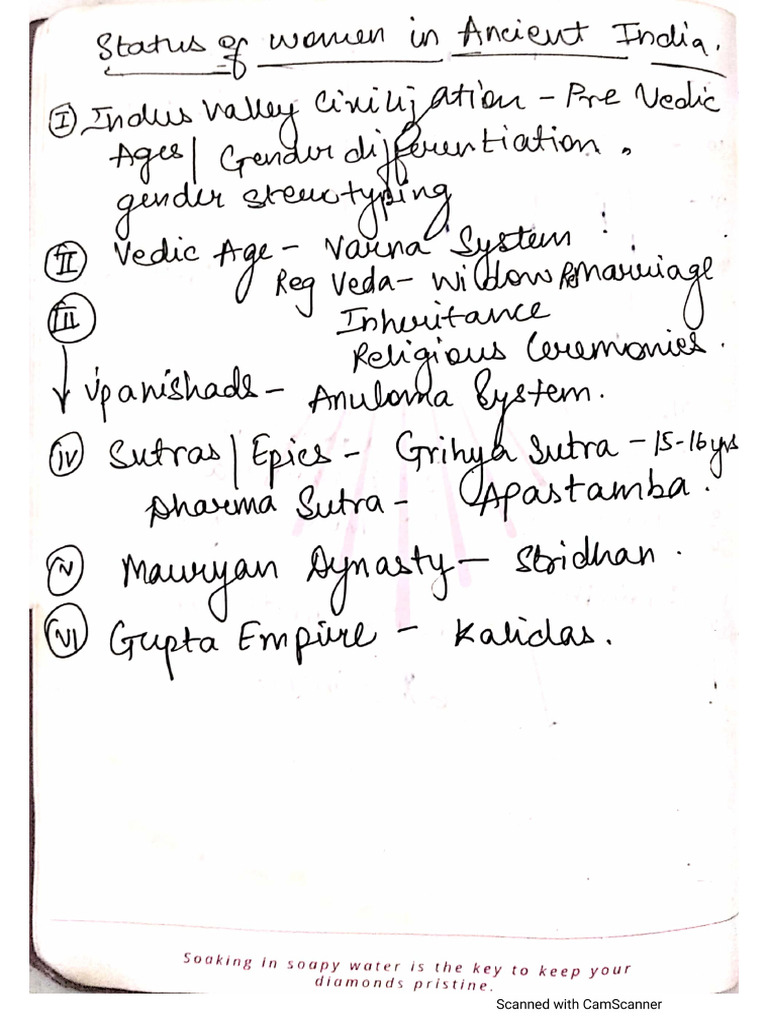 Status of women in Ancient India.
I Indus Valley Civilization - Pre Vedic
Ages | Gender differentiation.
gender sterotyping
II Vedic Age - Varna System
Reg Veda - Widow Remarriage
III Inheritance
Religious Ceremonies.
Upanishads - Anuloma System.
iv Sutras | Epics - Grihya Sutra - 15-16 yrs
Dharma Sutra - Apastamba.
V Mauryan Dynasty - Stridhan.
VI Gupta Empire - Kalidas.
Soaking in soapy water is the key to keep your
diamonds pristine.
Scanned with CamScanner